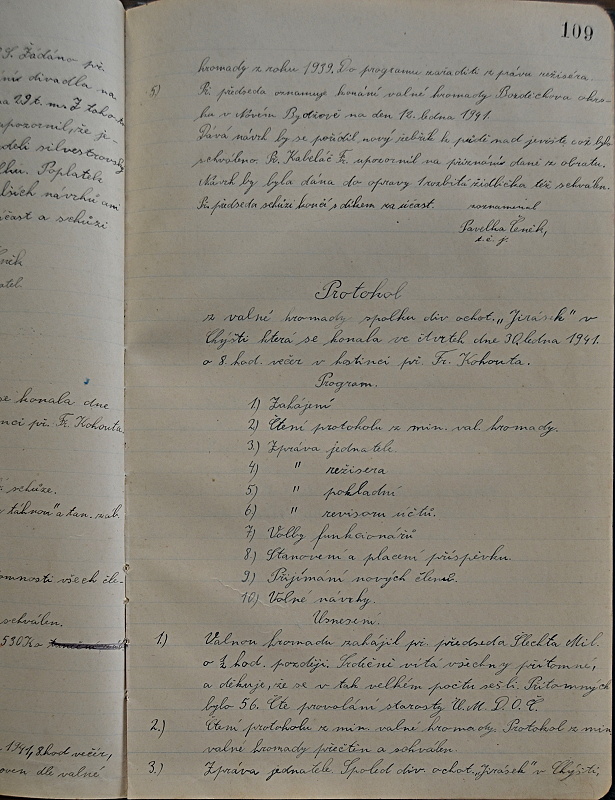 109
S. Žádáno při.
divadla na
na 29t. m. Z tohoto
upozornil, že je-
silvestrovský
Poplatek
dalších návrhů ani
účast a schůzi
se konala dne
nci př. Fr. Kohouta
schůze.
táhnou" a tan. zab.
omnosti všech čle-
schválen.
530 K
1941, 8 hod večer,
oven dle valné
hromady z roku 1939. Do programu zařaditi zprávu režiséra.
5) Př. předseda oznamuje konání valné hromady Bozděchova okrs-
ku v Novém Bydžově na den 12. ledna 1941.
Dává návrh by se pořídil nový žebřík k půdě nad jeviště což bylo
schváleno. Př. Kabeláč Fr. upozornil na přiznání daně z obratu.
Návrh by byla dána do opravy 1 rozbitá židlička též schválen.
Př. předseda schůzi končí s díkem za účast.
zaznamenal
Pavelka Čeněk,
t.č. j.
Protokol
z valné hromady spolku div ochot. „Jirásek" v
Chýšti ktera se konala ve čtvrtek dne 30. ledna 1941.
o 8. hod. večer v hostinci př. Fr. Kohouta.
Program.
1) Zahájení
2) Čtení protokolu z min. val. hromady.
3) Zpráva jednatele.
4) " režisera
5) " pokladní
6) " revisorů účtů.
7) Volby funkcionářů
8) Stanovení a placení příspěvku.
9) Přijímání nových členů.
10) Volné návrhy.
Usnesení.
1.) Valnou hromadu zahájil př. předseda Šlechta Mil.
o ½ hod. později. Srdečně vitá všechny přítomné,
a děkuje, že se v tak velkém počtu sešli. Přítomných
bylo 56. Čte provolání starosty Ú. M. D. O. Č.
2.) Čtení protokolu z min. valné hromady. Protokol z min
valné hromady přečtin a schválen.
3.) Zpráva jednatele. Spolek div. ochot. „Jirásek" v Chýšti,